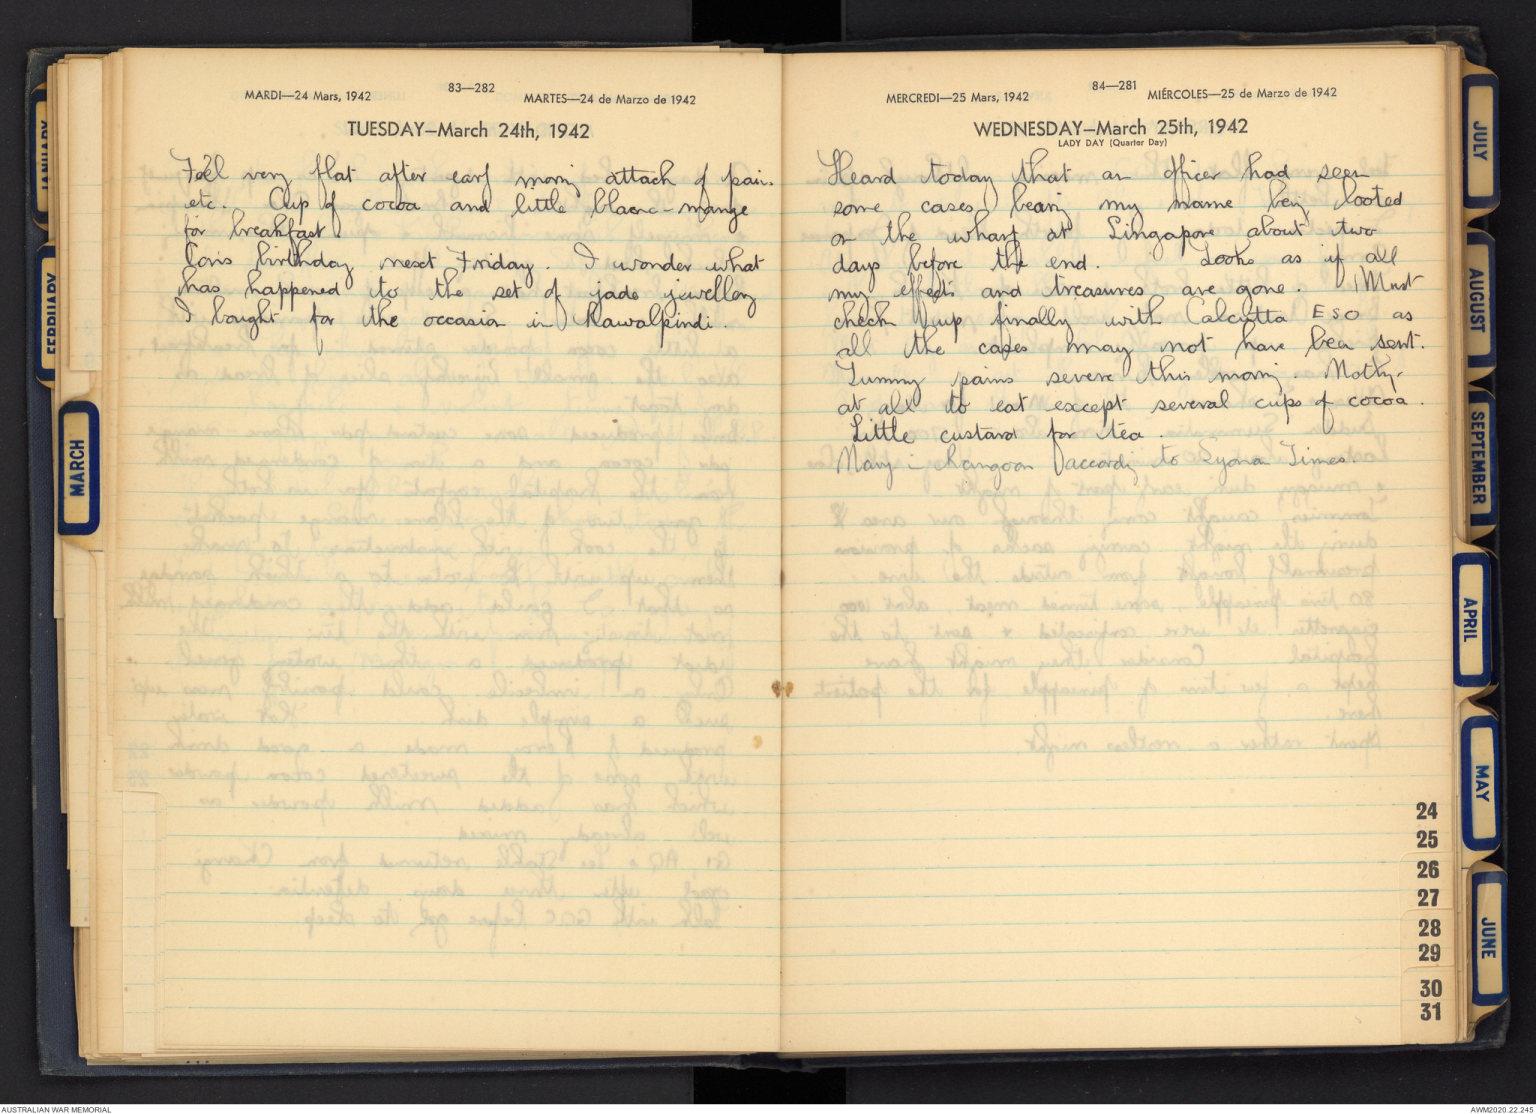 MARDI—24 Mars, 1942
83—282
MARTES—24 de Marzo de 1942
TUESDAY—March 24th, 1942
Feel very flat after early morng attack of pain
etc. Cup of cocoa and little blanc-mange
for breakfast.
birthday next Friday. I wonder what
has happened to the set of jade jewellery
I bought for the occasion in Rawalpindi.
MERCREDI—25 Mars, 1942
84—281
MIÉRCOLES—25 de Marzo de 1942
WEDNESDAY—March 25th, 1942
LADY DAY (Quarter Day)
Heard today that an officer had seen
some cases bearing my name being looted
on the wharf at Singapore about two
days before the end. Looks as if all
my effects and treasures are gone. Must
check up finally with Calcutta ESO as
all the cases may not have been sent.
Tummy pains severe this morng. Nothg
at all to eat except several cups of cocoa.
Little custard for tea.
Navy in Rangoon accordg to Syonan Times.
JANUARY
FEBRUARY
MARCH
JULY
AUGUST
SEPTEMBER
APRIL
MAY
JUNE
24
25
26
27
28
29
30
31
AUSTRALIAN WAR MEMORIAL
AWM2020.22.245